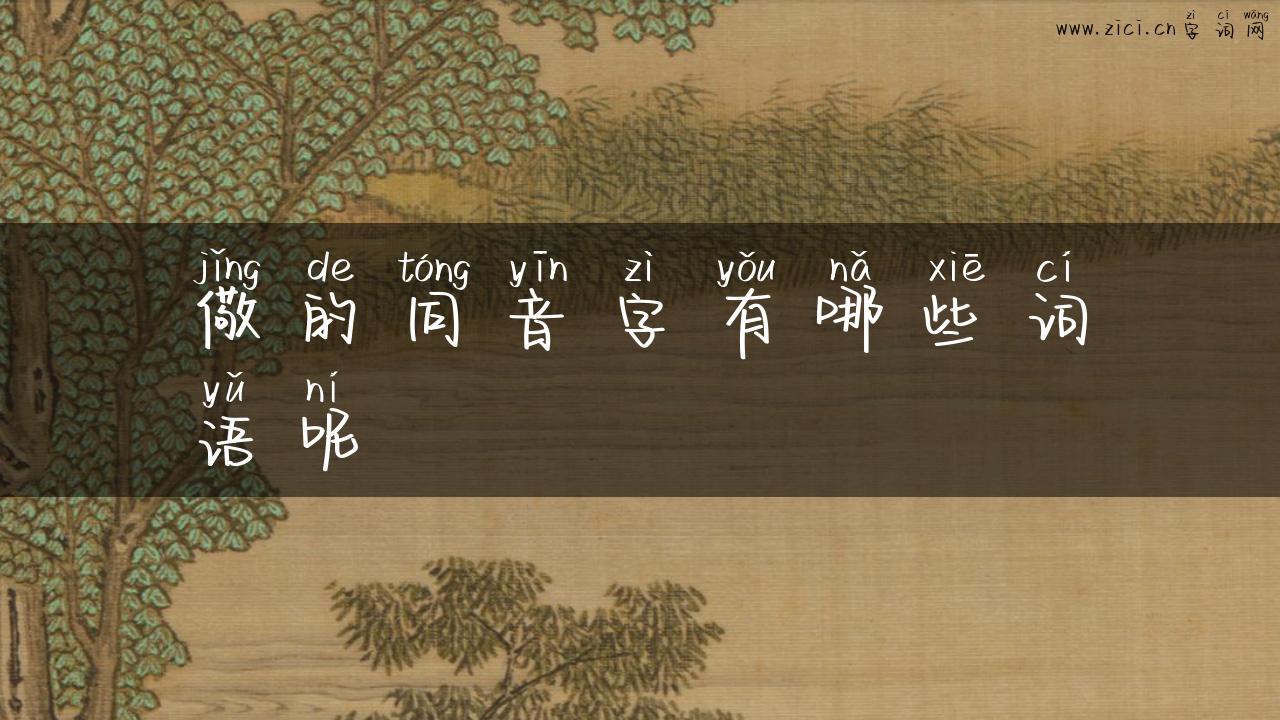 zì cí wǎng
www.zici.cn字词网
jǐng de tóng yīn zì yǒu nǎ xiē cí
儆的同音字有哪些词
yǔ ní
语呢